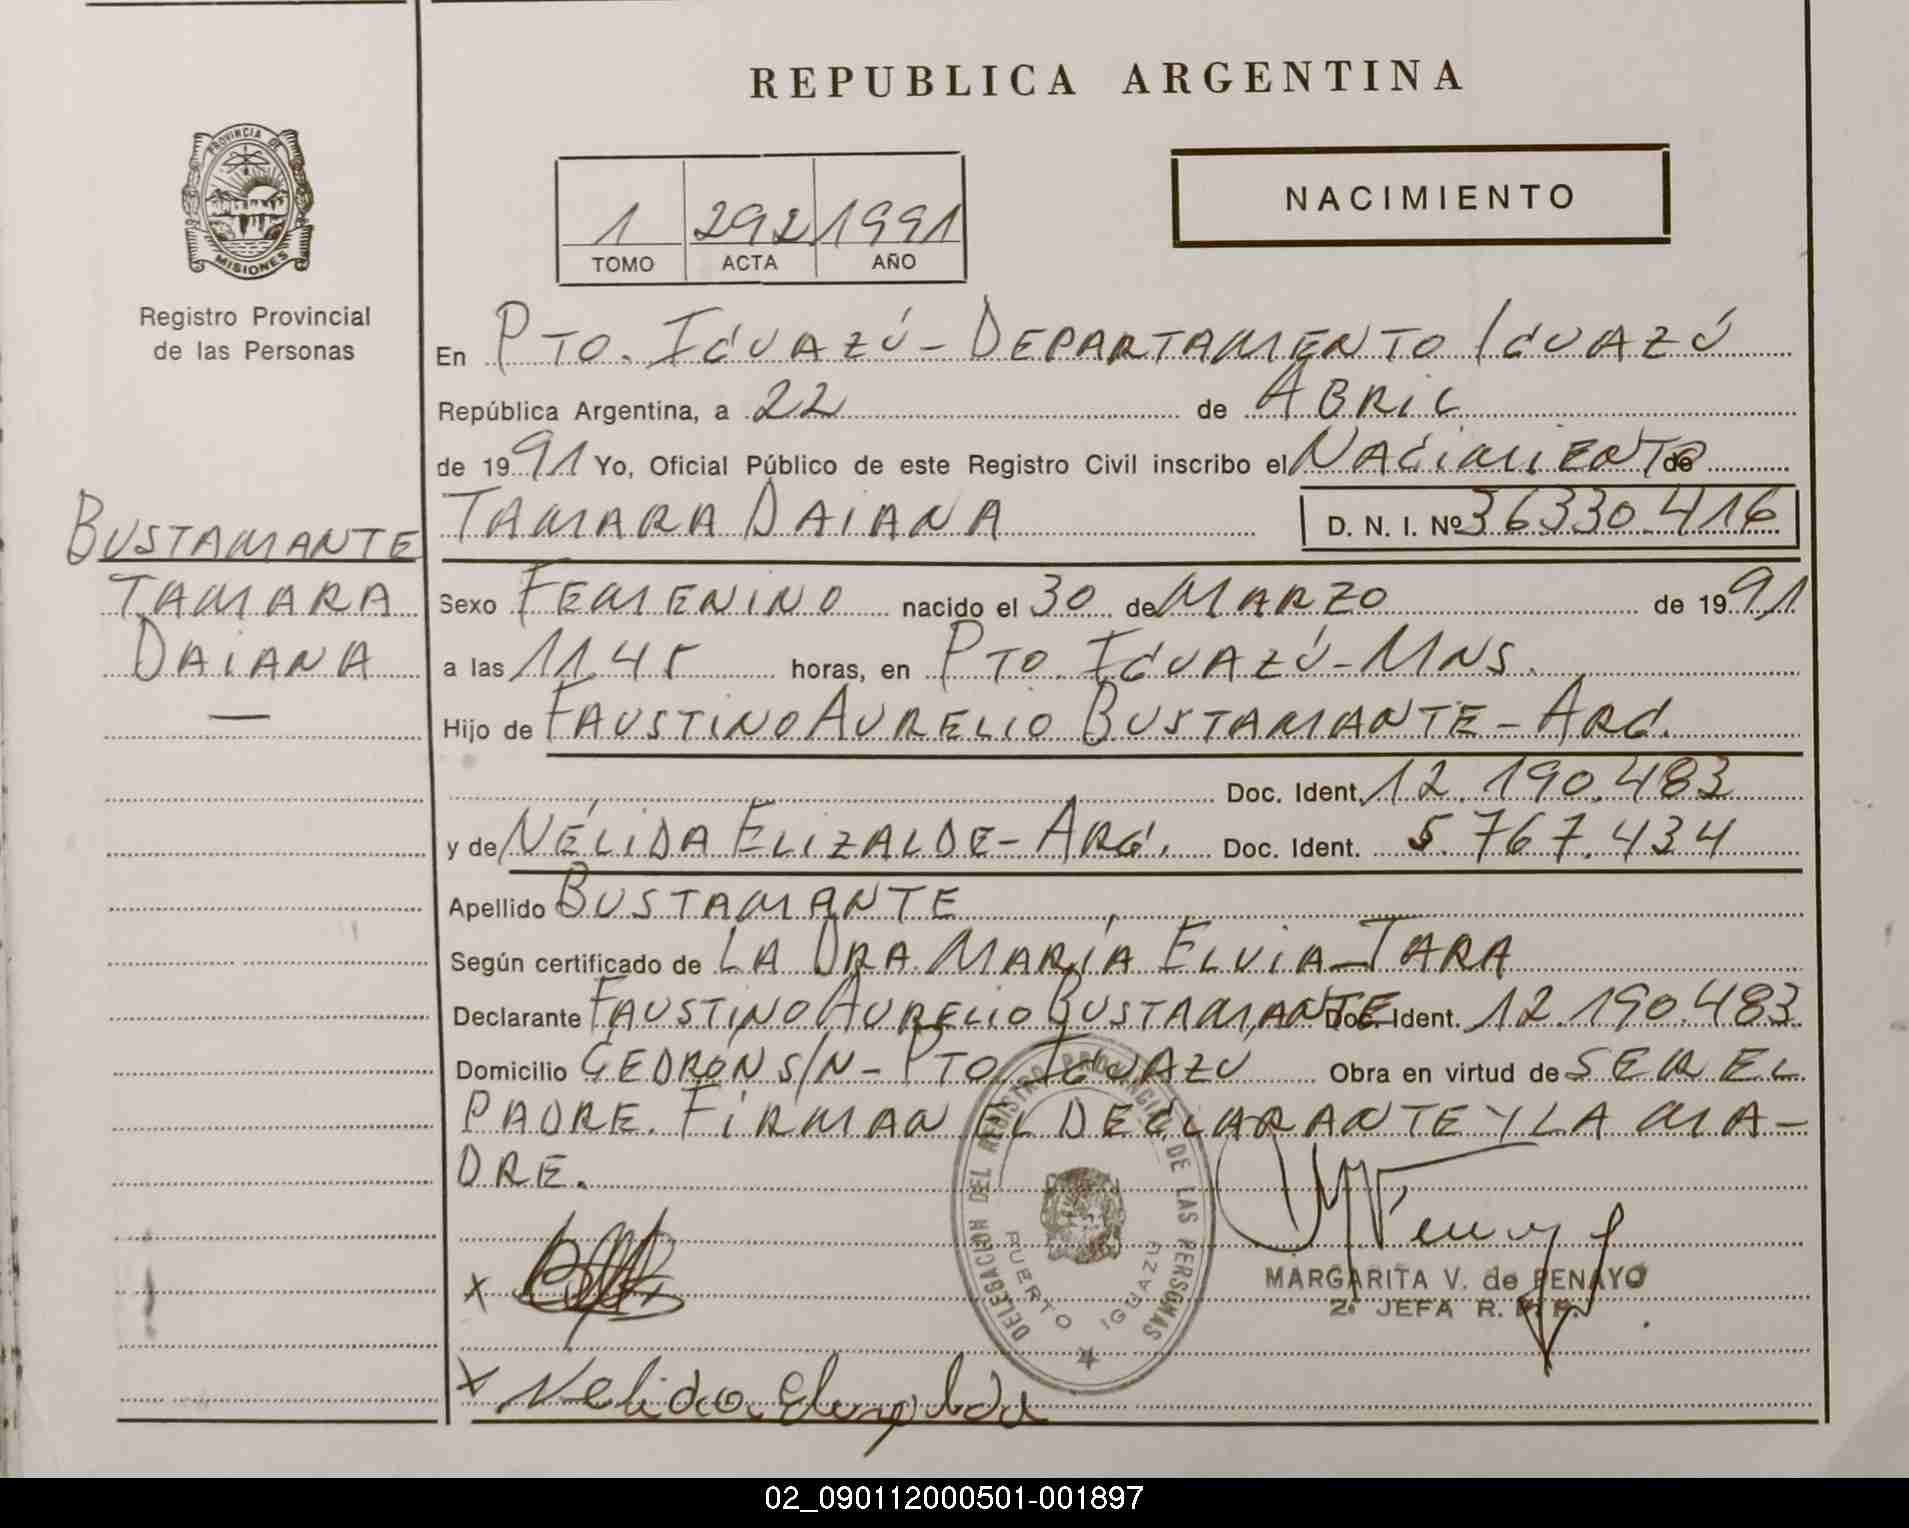 REPUBLICA ARGENTINA
PROVINCIA DE
MISIONES
Registro Provincial
de las Personas
NACIMIENTO
1 292 1991
TOMO ACTA AÑO
En PTO. IGUAZÚ - DEPARTAMENTO IGUAZÚ
República Argentina, a 22 de ABRIL
de 1991 Yo, Oficial Público de este Registro Civil inscribo el NACIMIENTO de
TAMARA DAIANA D. N. I. Nº 36330.416
BUSTAMANTE
TAMARA
DAIANA
Sexo FEMENINO nacido el 30 de MARZO de 1991
a las 11.45 horas, en PTO. IGUAZÚ - MNS.
Hijo de FAUSTINO AURELIO BUSTAMANTE - ARG.
Doc. Ident. 12.190.483
y de NÉLIDA ELIZALDE - ARG. Doc. Ident. 5.767.434
Apellido BUSTAMANTE
Según certificado de LA DRA. MARÍA ELVIA JARA
Declarante FAUSTINO AURELIO BUSTAMANTE Doc. Ident. 12.190.483
Domicilio GEDRÓN S/N - PTO IGUAZU Obra en virtud de SER EL
PADRE. FIRMAN EL DECLARANTE Y LA MA-
DRE.
DELEGACION DEL REGISTRO PROVINCIAL DE LAS PERSONAS
PUERTO IGUAZU
MARGARITA V. de PENAYO
2ª JEFA R. P. P.
X
X Nelida Elizalde
02_090112000501-001897